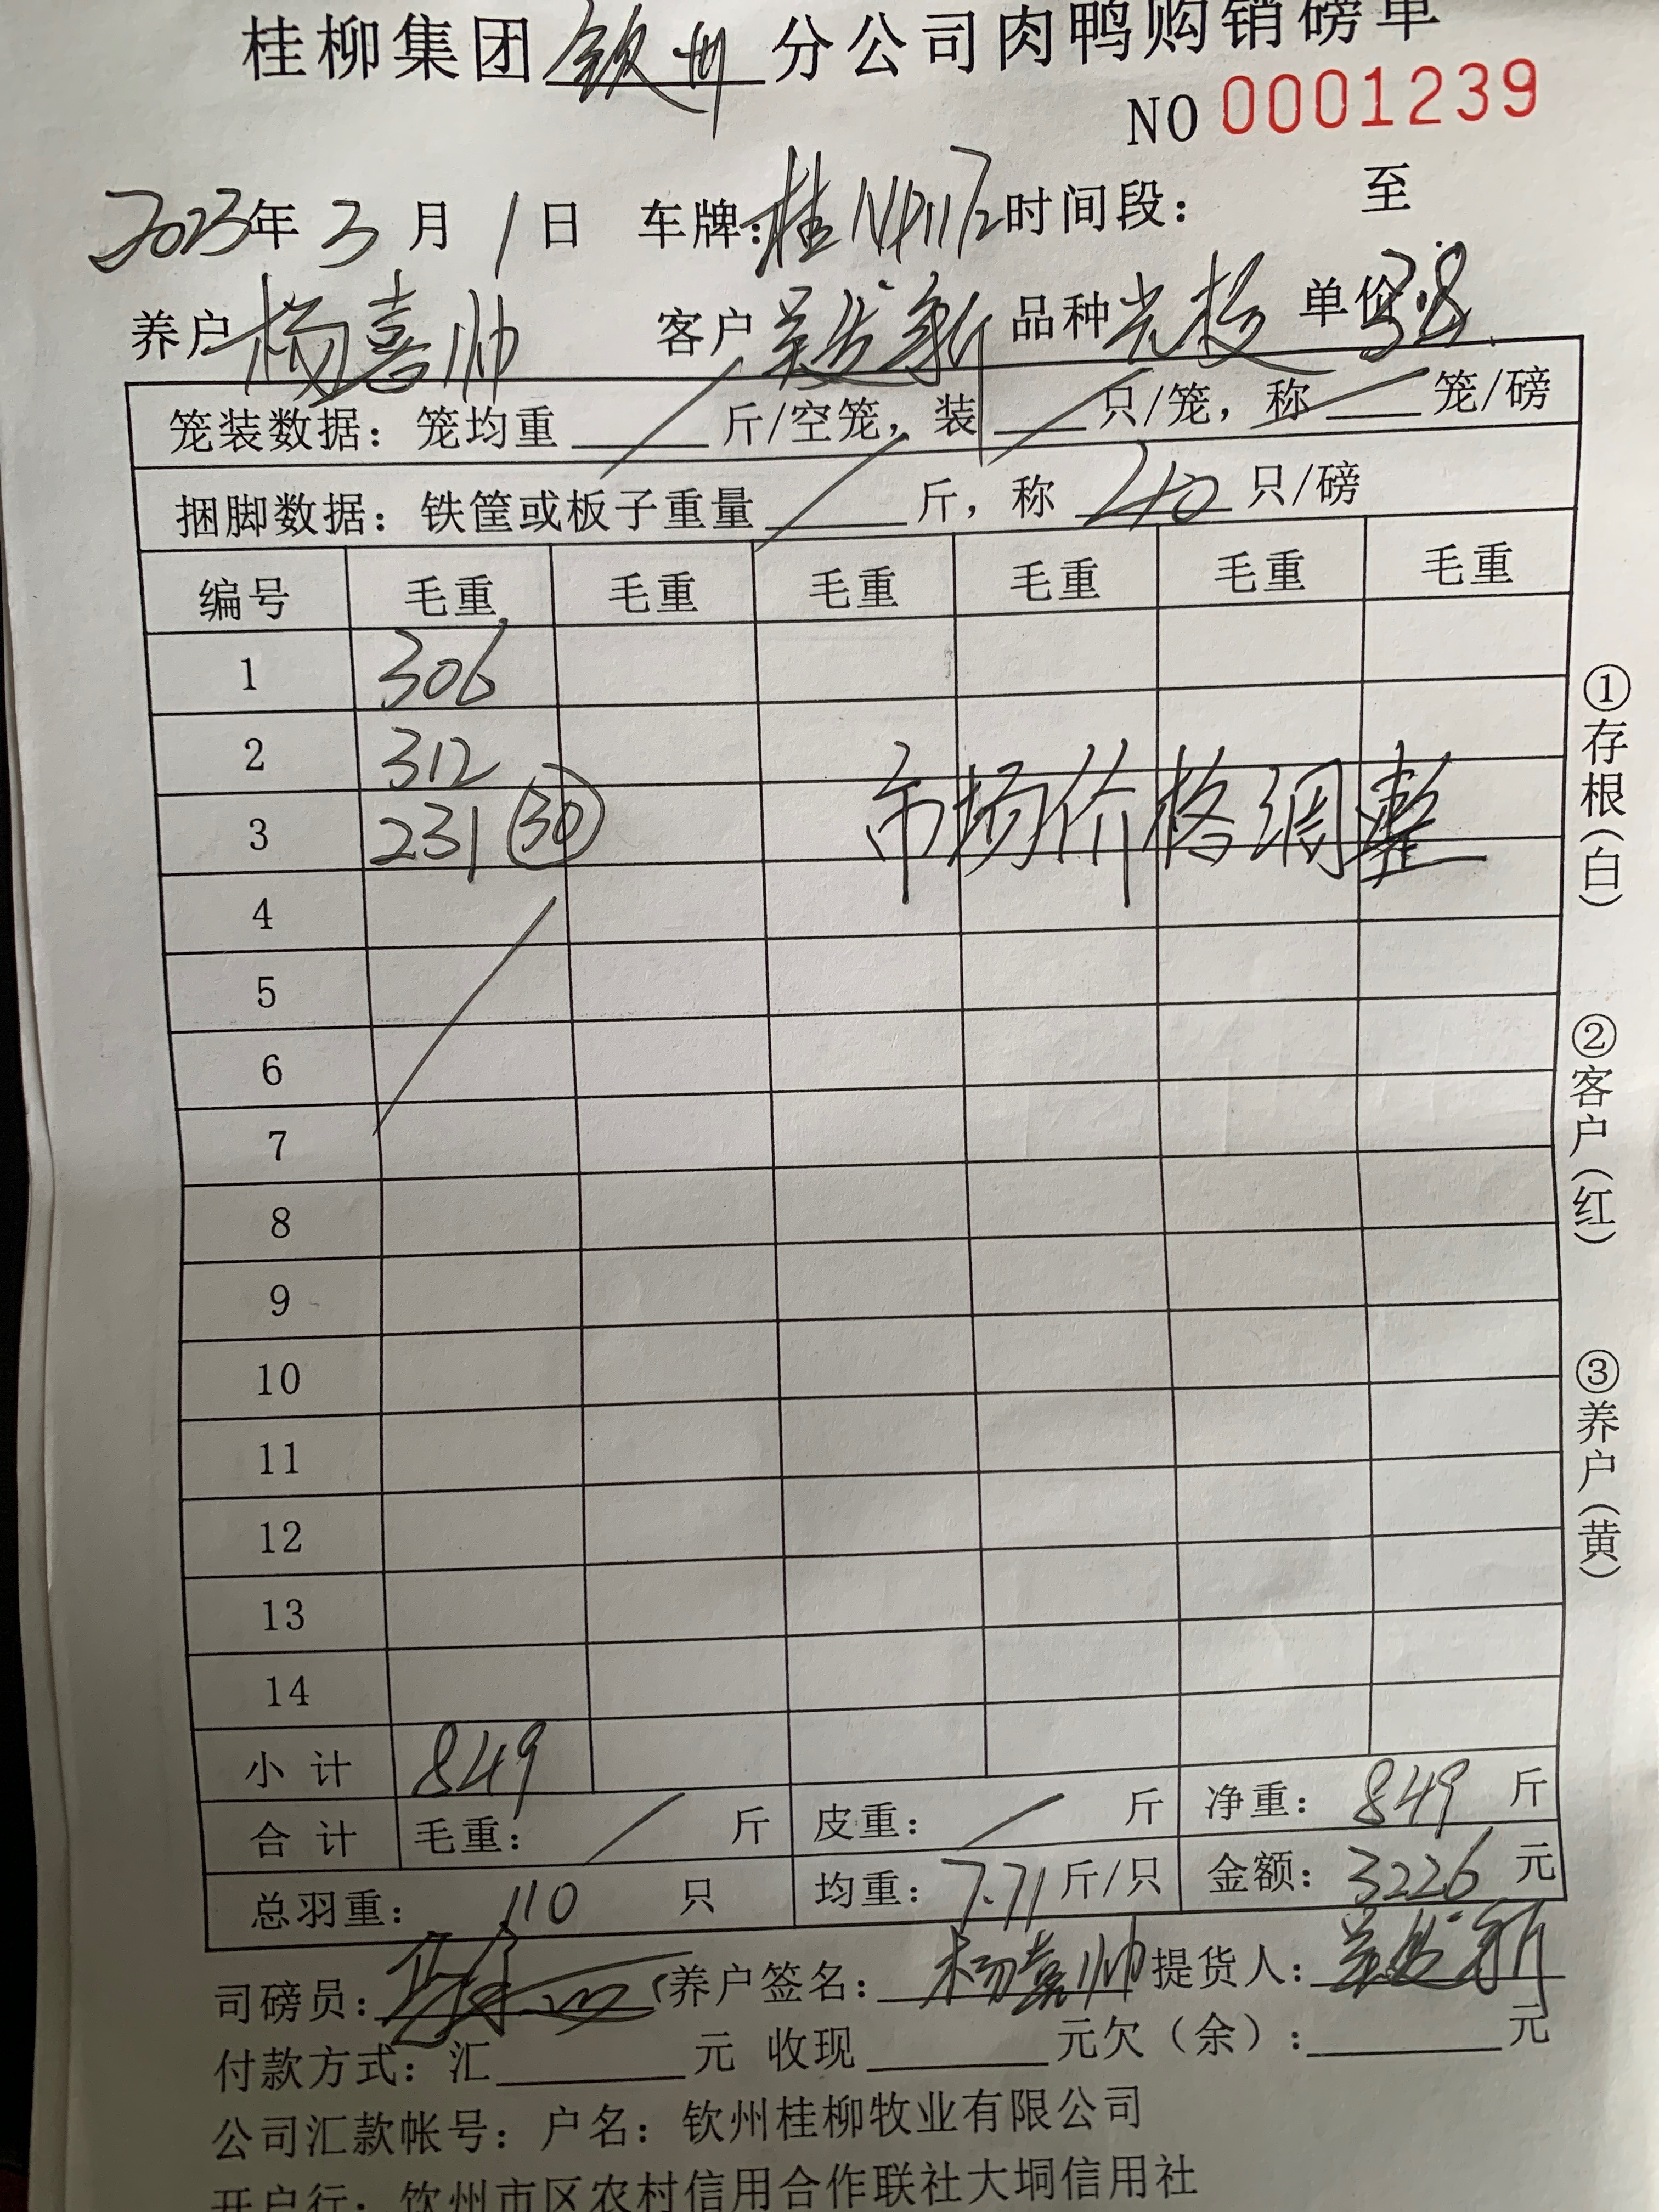 桂柳集团钦州分公司肉鸭购销磅单
NO 0001239
2023年3月1日 车牌:桂 时间段: 至
养户 杨喜帅 客户 吴发新 品种 单价 3.8
笼装数据: 笼均重 ____ 斤/空笼, 装 ____ 只/笼, 称 ____ 笼/磅
捆脚数据: 铁筐或板子重量 ____ 斤, 称 40 只/磅
编号 毛重 毛重 毛重 毛重 毛重 毛重
1 306
2 312
3 231 (30) 市场价格调整
4
5
6
7
8
9
10
11
12
13
14
小计 849
合计 毛重: / 斤 皮重: / 斤 净重: 849 斤
总羽重: 110 只 均重: 7.71 斤/只 金额: 3226 元
司磅员: 养户签名: 杨喜帅 提货人: 吴发新
付款方式: 汇 ____ 元 收现 ____ 元欠(余): ____ 元
公司汇款帐号: 户名: 钦州桂柳牧业有限公司
开户行: 钦州市区农村信用合作联社大垌信用社
①存根(白)
②客户(红)
③养户(黄)